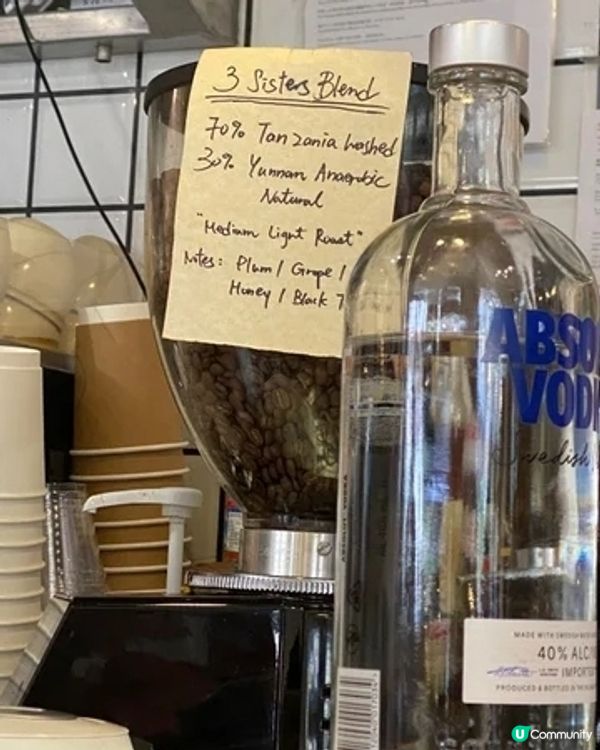 3 Sisters Blend
70% Tanzania washed
30% Yunnan Anaerobic
Natural
"Medium Light Roast"
Notes: Plum / Grape /
Honey / Black T
ABSO
VOD
Swedish
MADE WITH SWEDISH
40% ALC
IMPORTE
PRODUCED & BOTTLED IN
ABSOLUT VODKA
U Community